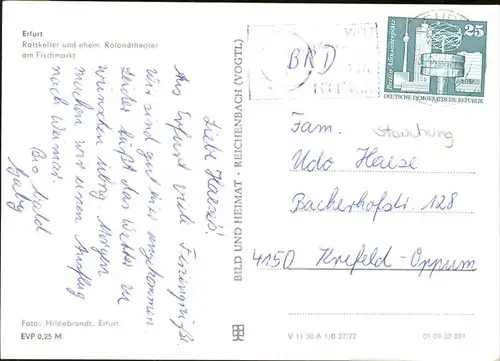 Erfurt
Ratskeller und ehem. Rolandtheater
am Fischmarkt
Liebe Haeses!
Aus Erfurt viele Feriengrüße.
Wir sind gut hier angekommen.
Leider läßt das Wetter zu
wünschen übrig. Morgen
machen wir einen Ausflug
nach Weimar.
Bis bald
Gaby
Foto: Hildebrandt, Erfurt
EVP 0,25 M
BILD UND HEIMAT · REICHENBACH (VOGTL)
BRD
25
Berlin-Alexanderplatz
DEUTSCHE DEMOKRATISCHE REPUBLIK
Stauchung
Fam.
Udo Haese
Bacherhofstr. 128
4150 Krefeld-Oppum
V 11 50 A 1/B 27/77
01 09 37 091